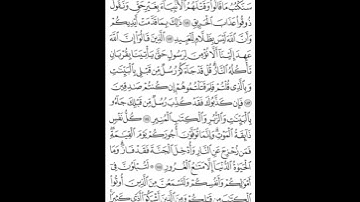 سَنَكْتُبُ مَا قَالُوا۟ وَقَتْلَهُمُ ٱلْأَنۢبِيَآءَ بِغَيْرِ حَقٍّ وَنَقُولُ
ذُوقُوا۟ عَذَابَ ٱلْحَرِيقِ ١٨١ ذَٰلِكَ بِمَا قَدَّمَتْ أَيْدِيكُمْ
وَأَنَّ ٱللَّهَ لَيْسَ بِظَلَّامٍ لِّلْعَبِيدِ ١٨٢ ٱلَّذِينَ قَالُوٓا۟ إِنَّ ٱللَّهَ
عَهِدَ إِلَيْنَآ أَلَّا نُؤْمِنَ لِرَسُولٍ حَتَّىٰ يَأْتِيَنَا بِقُرْبَانٍ
تَأْكُلُهُ ٱلنَّارُ قُلْ قَدْ جَآءَكُمْ رُسُلٌ مِّن قَبْلِى بِٱلْبَيِّنَٰتِ
وَبِٱلَّذِى قُلْتُمْ فَلِمَ قَتَلْتُمُوهُمْ إِن كُنتُمْ صَٰدِقِينَ
١٨٣ فَإِن كَذَّبُوكَ فَقَدْ كُذِّبَ رُسُلٌ مِّن قَبْلِكَ جَآءُو
بِٱلْبَيِّنَٰتِ وَٱلزُّبُرِ وَٱلْكِتَٰبِ ٱلْمُنِيرِ ١٨٤ كُلُّ نَفْسٍ
ذَآئِقَةُ ٱلْمَوْتِ وَإِنَّمَا تُوَفَّوْنَ أُجُورَكُمْ يَوْمَ ٱلْقِيَٰمَةِ
فَمَن زُحْزِحَ عَنِ ٱلنَّارِ وَأُدْخِلَ ٱلْجَنَّةَ فَقَدْ فَازَ وَمَا
ٱلْحَيَوٰةُ ٱلدُّنْيَآ إِلَّا مَتَٰعُ ٱلْغُرُورِ ١٨٥ لَتُبْلَوُنَّ فِىٓ
أَمْوَٰلِكُمْ وَأَنفُسِكُمْ وَلَتَسْمَعُنَّ مِنَ ٱلَّذِينَ أُوتُوا۟
ٱلْكِتَٰبَ مِن قَبْلِكُمْ وَمِنَ ٱلَّذِينَ أَشْرَكُوٓا۟ أَذًى كَثِيرًا